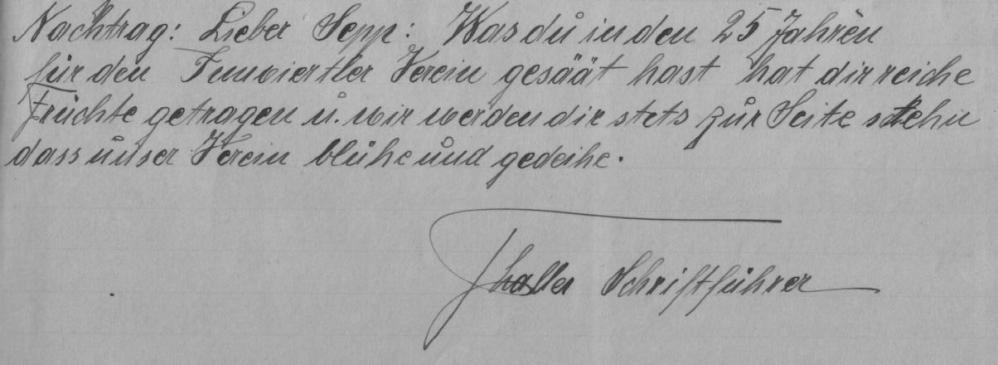 Nachtrag: Lieber Sepp: Was du in den 25 Jahren
für den Innviertler Verein gesäät hast hat dir reiche
Früchte getragen u. wir werden dir stets zur Seite stehn
dass unser Verein blühe und gedeihe.
Thaller Schriftführer